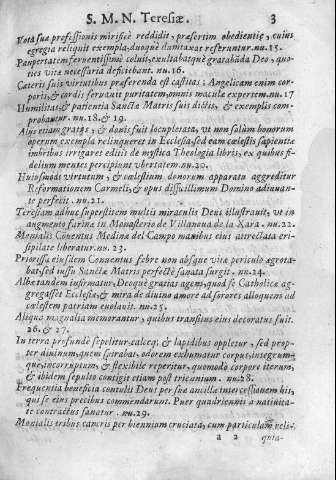 S. M. N. Teresiæ. 3
Vota suæ professionis mirificè reddidit, præsertim obedientiæ, cuius
egregia reliquit exempla, duoque dumtaxat referuntur. nu. 15.
Paupertatem ferventissimè coluit, exultabatque grata Deo, quo-
ties vitæ necessaria deficiebant. nu. 16.
Cæteris suis virtutibus præferenda est castitas; Angelicam enim cor-
poris, & cordis servauit puritatem, omnis macula expertem. nu. 17
Humilitas, & patientia Sanctæ Matris suis dictis, & exemplis com-
probantur. nu. 18. & 19.
Alijs etiam gratijs, & donis fuit locupletata, vt non solùm bonorum
operum exempla relinqueret in Ecclesia, sed eam cælestis sapientiæ
imbribus irrigaret editis de mystica Theologia libris, ex quibus fi-
delium mentes percipiunt vbertatem. nu. 20.
Huiusmodi virtutum, & cælestium donorum apparatu aggreditur
Reformationem Carmeli, & opus difficillimum Domino adiuuan-
te perfecit. nu. 21.
Teresiam adhuc superstitem multis miraculis Deus illustrauit, vt in
augmento farinæ in Monasterio de Villanoua de la Xara. nu. 22.
Monialis Conuentus Medinæ del Campo manibus eius attrectata eri-
sipilate liberatur. nu. 23.
Priorissa eiusdem Conuentus febre non absque vitæ periculo ægrota-
bat, sed iussu Sanctæ Matris perfectè sanata surgit. nu. 24.
Albæ tandem infirmatur, Deoque gratias agens, quod se Catholicæ ag-
gregasset Ecclesiæ, & mira de diuino amore ad sorores alloquens ad
cælestem patriam euolauit. nu. 25.
Aliqua magnalia memorantur, quibus transitus eius decoratus fuit.
26. & 27.
In terra profundè sepelitur, calce, & lapidibus oppletur, sed prop-
ter diuinum, quem spirabat, odorem exhumatur corpus, integrum-
que, incorruptum, & flexibile reperitur, quomodo corpore iterum,
& ibidem sepulto contigit etiam post triennium. nu. 28.
Frequentia beneficia contulit Deus per suæ ancillæ intercessionem his,
qui se eius precibus commendarunt. Puer quadriennis a natiuita-
te contractus sanatur. nu. 29.
Monialis tribus cancris per biennium cruciata, cum particulam reli-
a 2 quia-